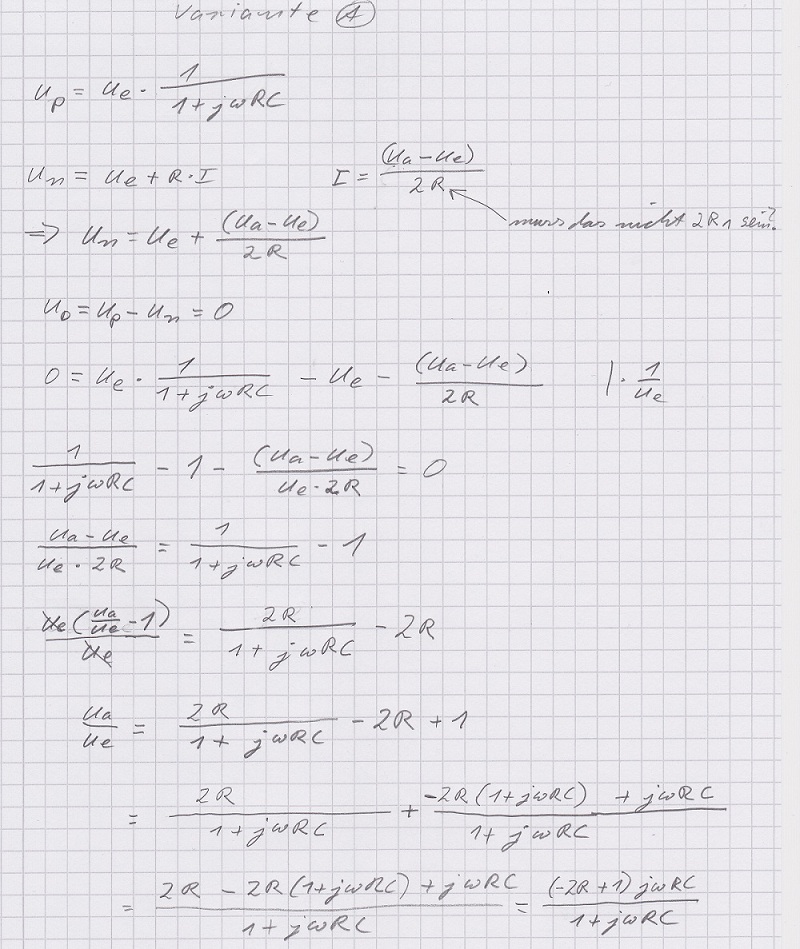 Variante A
u_p = u_e · 1/(1+jωRC)
u_n = u_e + R·I    I = (u_a-u_e)/2R
muss das nicht 2R1 sein?
=> u_n = u_e + (u_a-u_e)/2R
u_D = u_p - u_n = 0
0 = u_e · 1/(1+jωRC) - u_e - (u_a-u_e)/2R    |· 1/u_e
1/(1+jωRC) - 1 - (u_a-u_e)/(u_e·2R) = 0
(u_a-u_e)/(u_e·2R) = 1/(1+jωRC) - 1
u_e(u_a/u_e -1)/u_e = 2R/(1+jωRC) - 2R
u_a/u_e = 2R/(1+jωRC) - 2R + 1
= 2R/(1+jωRC) + (-2R(1+jωRC) + jωRC)/(1+jωRC)
= (2R - 2R(1+jωRC) + jωRC)/(1+jωRC) = (-2R+1)jωRC/(1+jωRC)